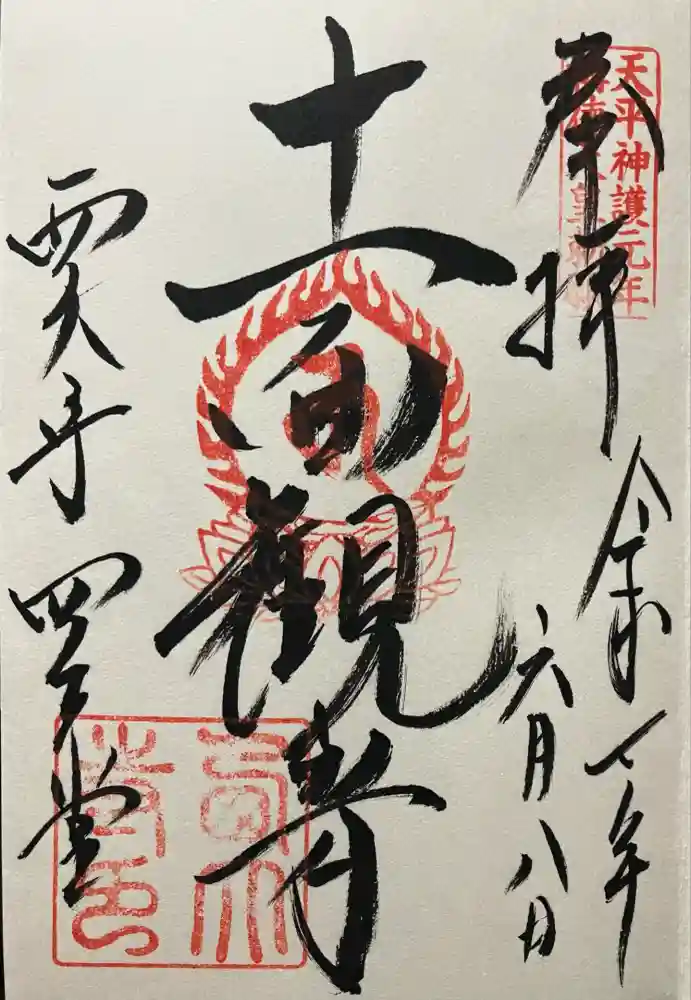 天平神護元年
奉拝
令和七年
六月八日
十一面観音
西大寺 四王堂
西大
寺印